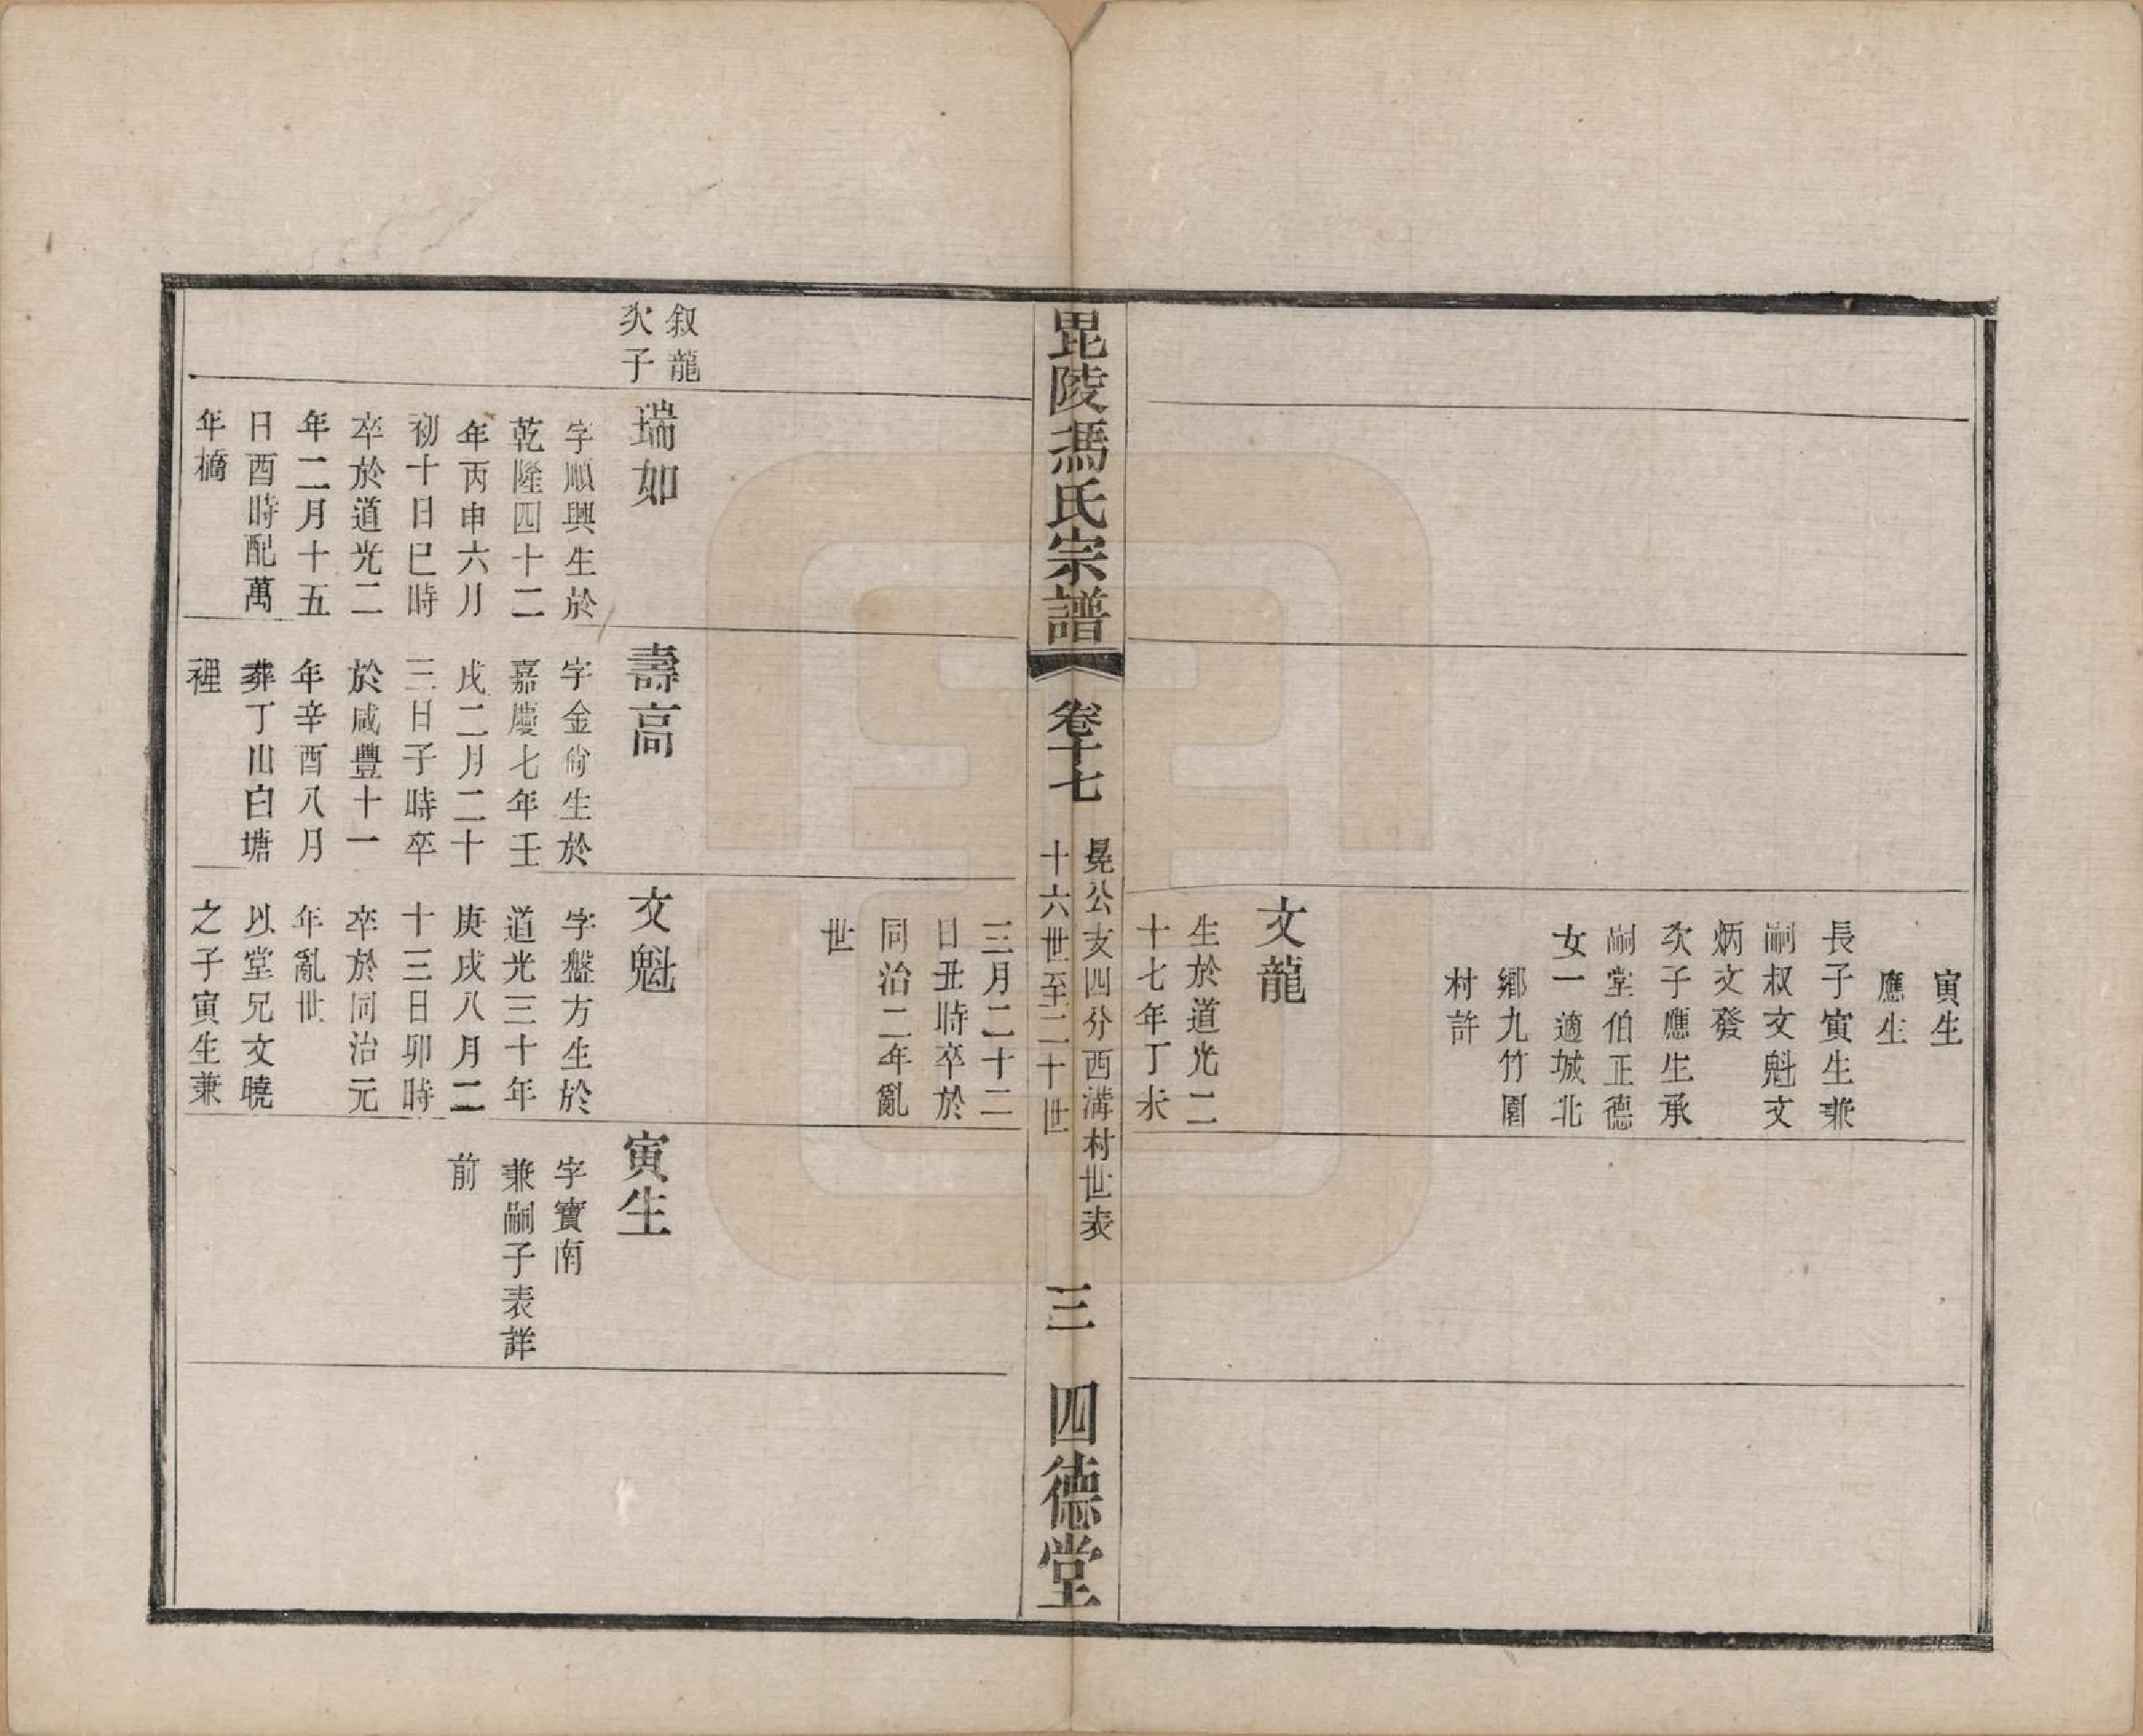 寅生
應生
長子寅生兼
嗣叔文魁文
炳文發
次子應生承
嗣堂伯正德
女一適城北
鄉九竹園
村許
文龍
生於道光二
十七年丁未
毘陵馮氏宗譜
卷十七
晃公亥四分西溝村世表
十六世至二十世
三
四德堂
三月二十二
日丑時卒於
同治二年亂
世
叙龍
次子
瑞如
字順興生於
乾隆四十二
年丙申六月
初十日巳時
卒於道光二
年二月十五
日酉時配萬
年橋
壽高
字金尙生於
嘉慶七年壬
戌二月二十
三日子時卒
於咸豐十一
年辛酉八月
葬丁山白塘
裡
文魁
字盤方生於
道光三十年
庚戌八月二
十三日卯時
卒於同治元
年亂世
以堂兄文曉
之子寅生兼
寅生
字寶南
兼嗣子表詳
前